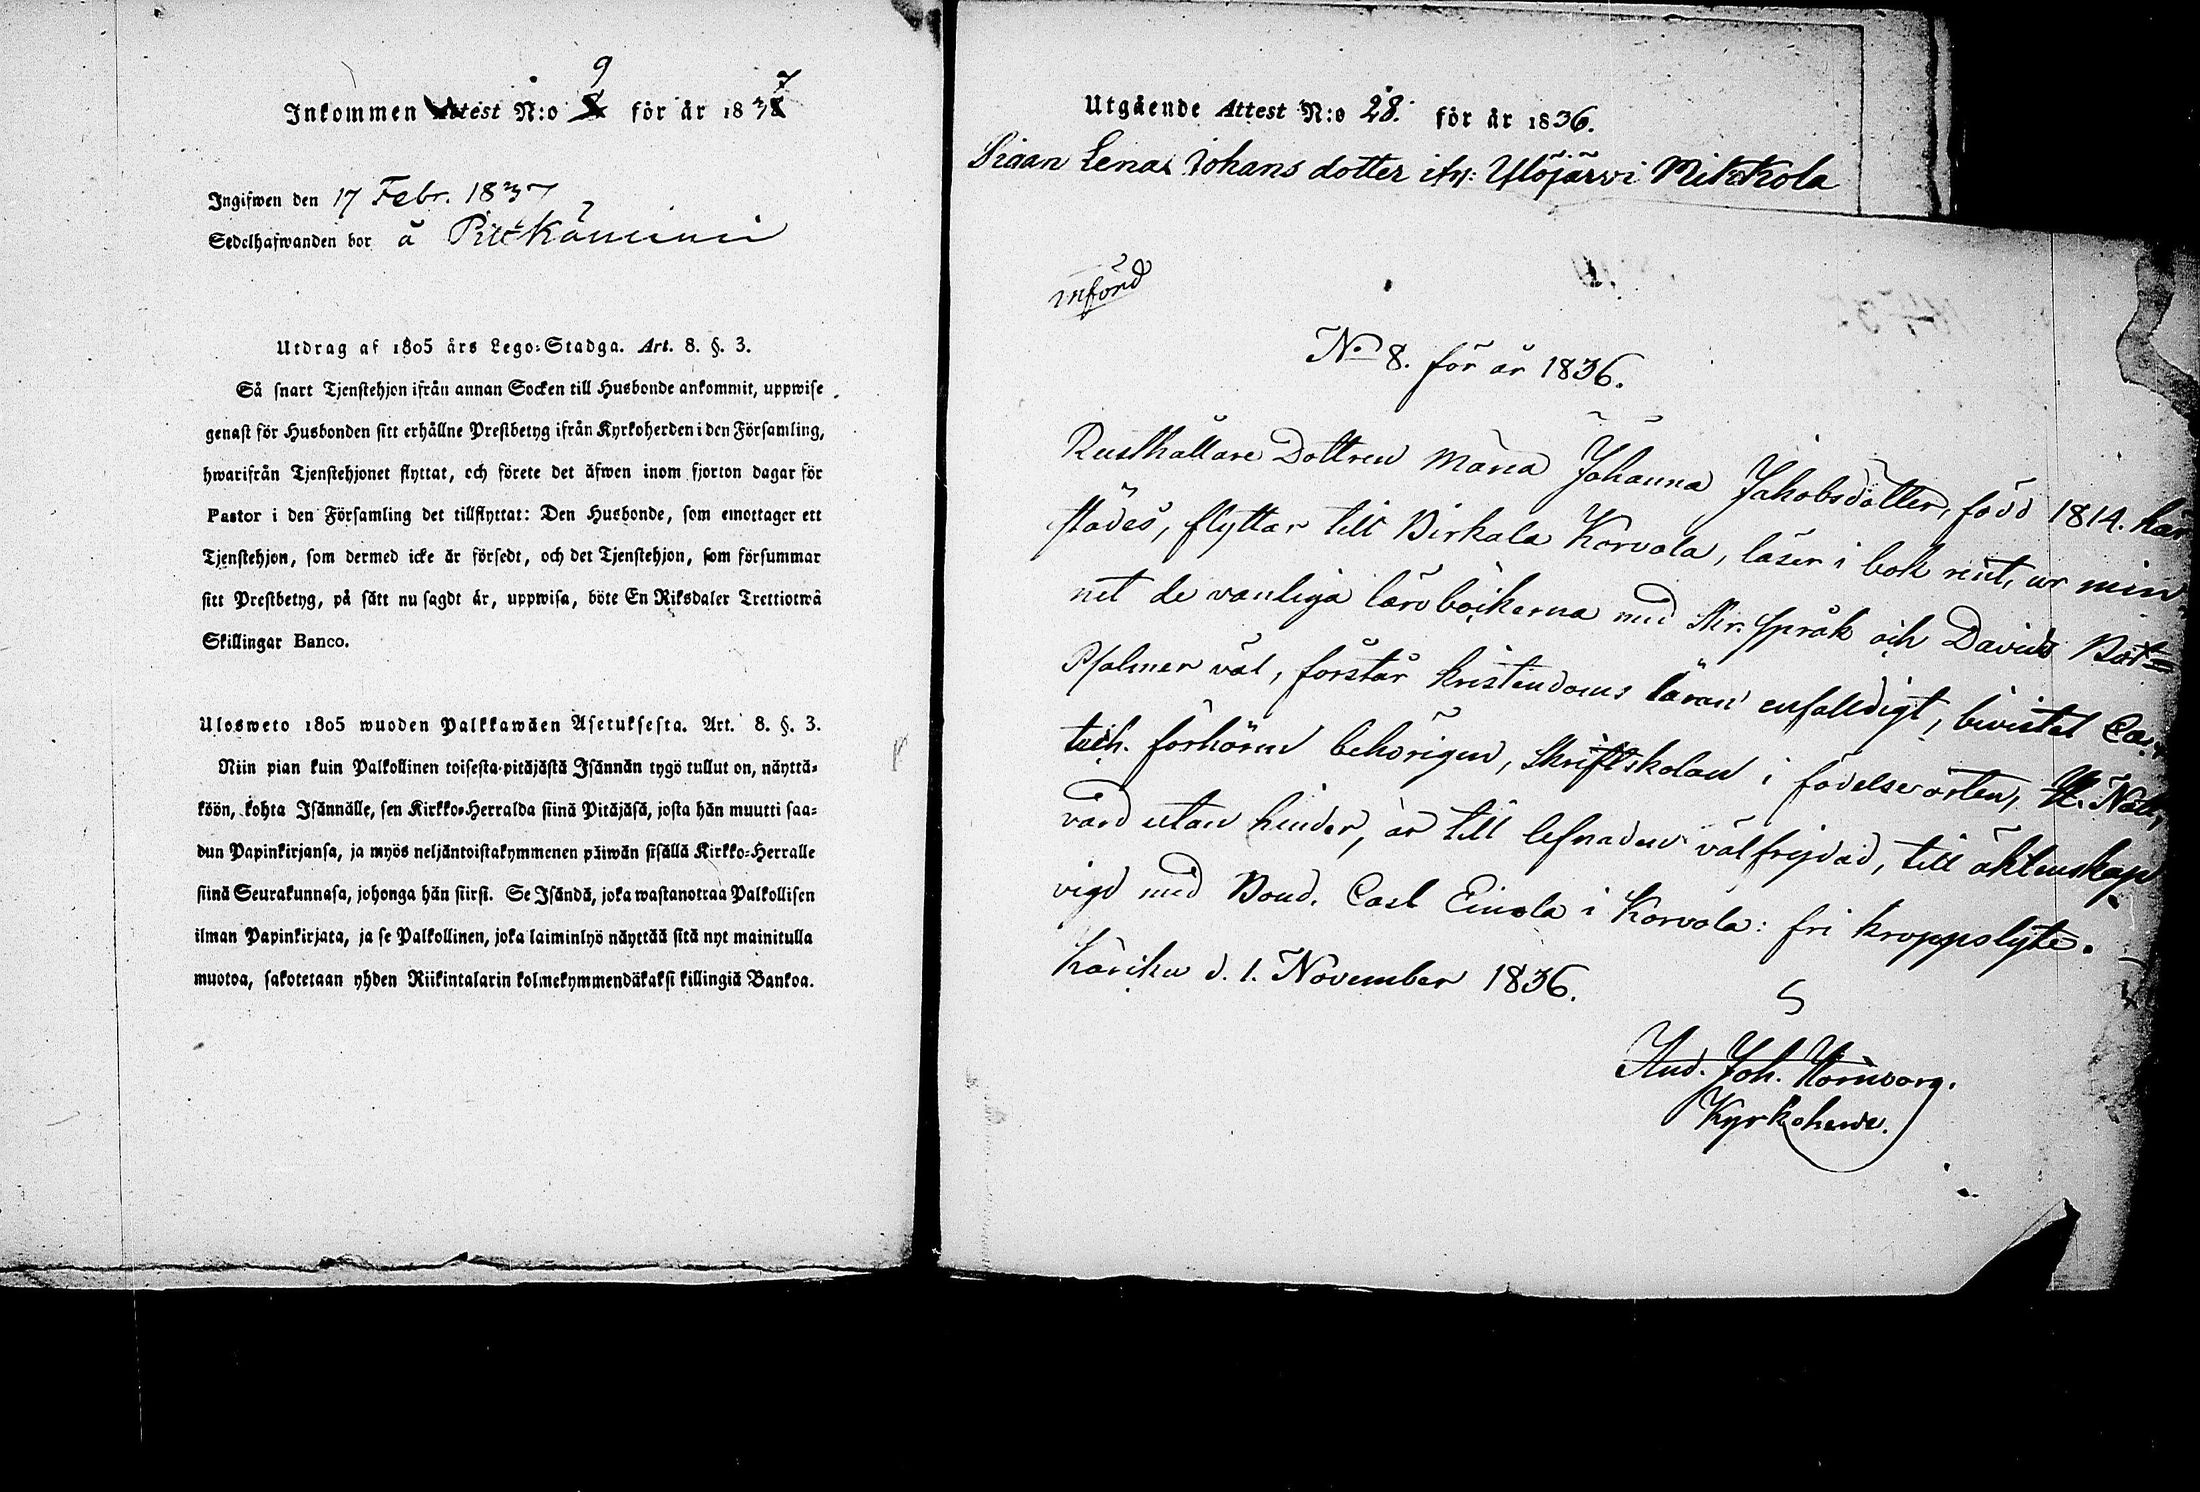 Inkommen Attest N:o 9 för år 1837
Ingifwen den 17 Febr. 1837
Sedelhafwanden bor å Pitkäniemi
Utdrag af 1805 års Lego-Stadga. Art. 8. §. 3.
Så snart Tjenstehjon ifrån annan Socken till Husbonde ankommit, uppwise
genast för Husbonden sitt erhållne Prestbetyg ifrån Kyrkoherden i den Församling,
hwarifrån Tjenstehjonet flyttat, och förete det äfwen inom fjorton dagar för
Pastor i den Församling det tillflyttat: Den Husbonde, som emottager ett
Tjenstehjon, som dermed icke är försedt, och det Tjenstehjon, som försummar
sitt Prestbetyg, på sätt nu sagdt är, uppwisa, böte En Riksdaler Trettiotwå
Skillingar Banco.
Ulosweto 1805 wuoden Palkkawäen Asetuksesta. Art. 8. §. 3.
Niin pian kuin Palkollinen toisesta pitäjästä Isännän tygö tullut on, näyttä-
köön, kohta Isännälle, sen Kirkko-Herralda siinä Pitäjäsä, josta hän muutti saa-
dun Papinkirjansa, ja myös neljäntoistakymmenen päiwän sisällä Kirkko-Herralle
siinä Seurakunnasa, johonga hän siirsi. Se Isändä, joka wastanottaa Palkollisen
ilman Papinkirjata, ja se Palkollinen, joka laiminlyö näyttää sitä nyt mainitulla
muotoa, sakotetaan yhden Riikintalarin kolmekymmendäkaksi killingiä Bankoa.
Utgående Attest N:o 28. för år 1836.
Pigan Lena Johans dotter ifr: Ylöjärvi Mikkola
införd
No 8. för år 1836.
Rusthållare Dottren Maria Johanna Jakobsdotter, född 1814. här
städes, flyttar till Birkala Korvola, läser i bok rent, ur min
net de vanliga läroböckerna med Skr. språk och Davids Bot=
Psalmer väl, förstår kristendoms läran enfaldigt, bevistat Ca
tech. förhören behörigen, Skriftskolan i födelseorten, H. Natt
vard utan hinder, är till lefnaden välfrejdad, till äktenskap
vigd med Bond. Carl Einola i Korvola: fri kroppslyte.
d. 1. November 1836.
And. Joh. Hornborg.
Kyrkoherde.